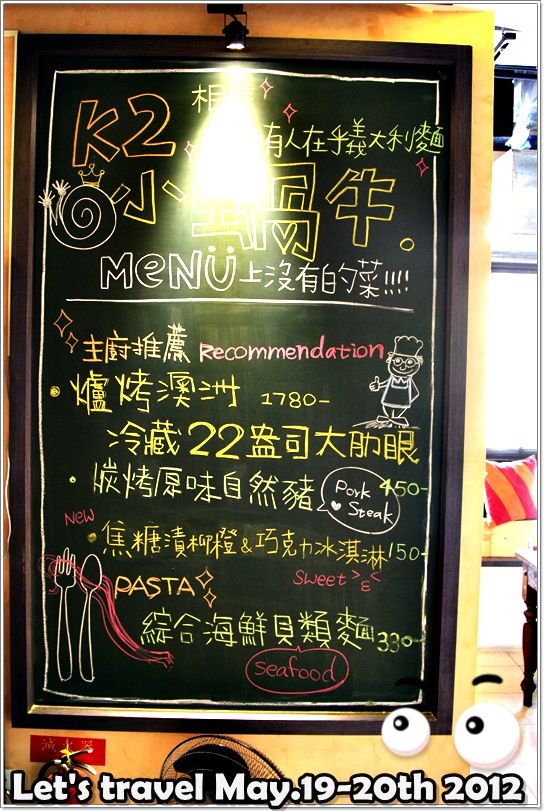 K2 相
有人在乎義大利麵
小蝸牛.
MENÜ上沒有的菜!!!!
主廚推薦 Recommendation
爐烤澳洲 1780-
冷藏22盎司大肋眼
炭烤原味自然豬 Pork Steak 450-
New
焦糖漬柳橙&巧克力冰淇淋150-
Sweet
PASTA
綜合海鮮貝類麵 330-
Seafood
滅火器
Let's travel May.19-20th 2012